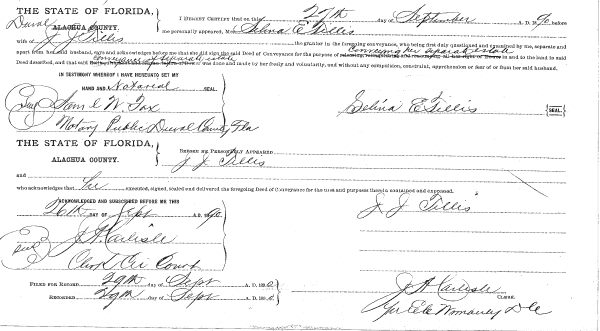 THE STATE OF FLORIDA,
Duval
ALACHUA COUNTY.
I HEREBY CERTIFY that on this 27th day of September A. D. 18 90 before
me personally appeared, Mrs Selina E Tillis
wife of J. J. Tillis the grantor in the foregoing conveyance, who being first duly questioned and examined by me, separate and
apart from her said husband, says and acknowledges before me that she did sign the said Deed of Conveyance for the purpose of conveying her separate estate in and to the land in said
conveyance of separate estate
Deed described, and that said was done and made by her freely and voluntarily, and without any compulsion, constraint, apprehension or fear of or from her said husband.
IN TESTIMONY WHEREOF I HAVE HEREUNTO SET MY
HAND AND Notarial SEAL
Seal Saml W. Fox
Notary Public Duval County, Fla
Selina E Tillis SEAL
THE STATE OF FLORIDA,
ALACHUA COUNTY.
BEFORE ME PERSONALLY APPEARED
J. J. Tillis
and
who acknowledges that he executed, signed, sealed and delivered the foregoing Deed of Conveyance for the uses and purposes therein contained and expressed.
ACKNOWLEDGED AND SUBSCRIBED BEFORE ME THIS
26th DAY OF Sept A. D. 1890
J. J. Tillis
Seal J. A. Carlisle
Clerk Cir Court
FILED FOR RECORD 29th day of Sept A. D. 1890
RECORDED 29th day of Sept A. D. 1890
J A Carlisle
CLERK.
D C